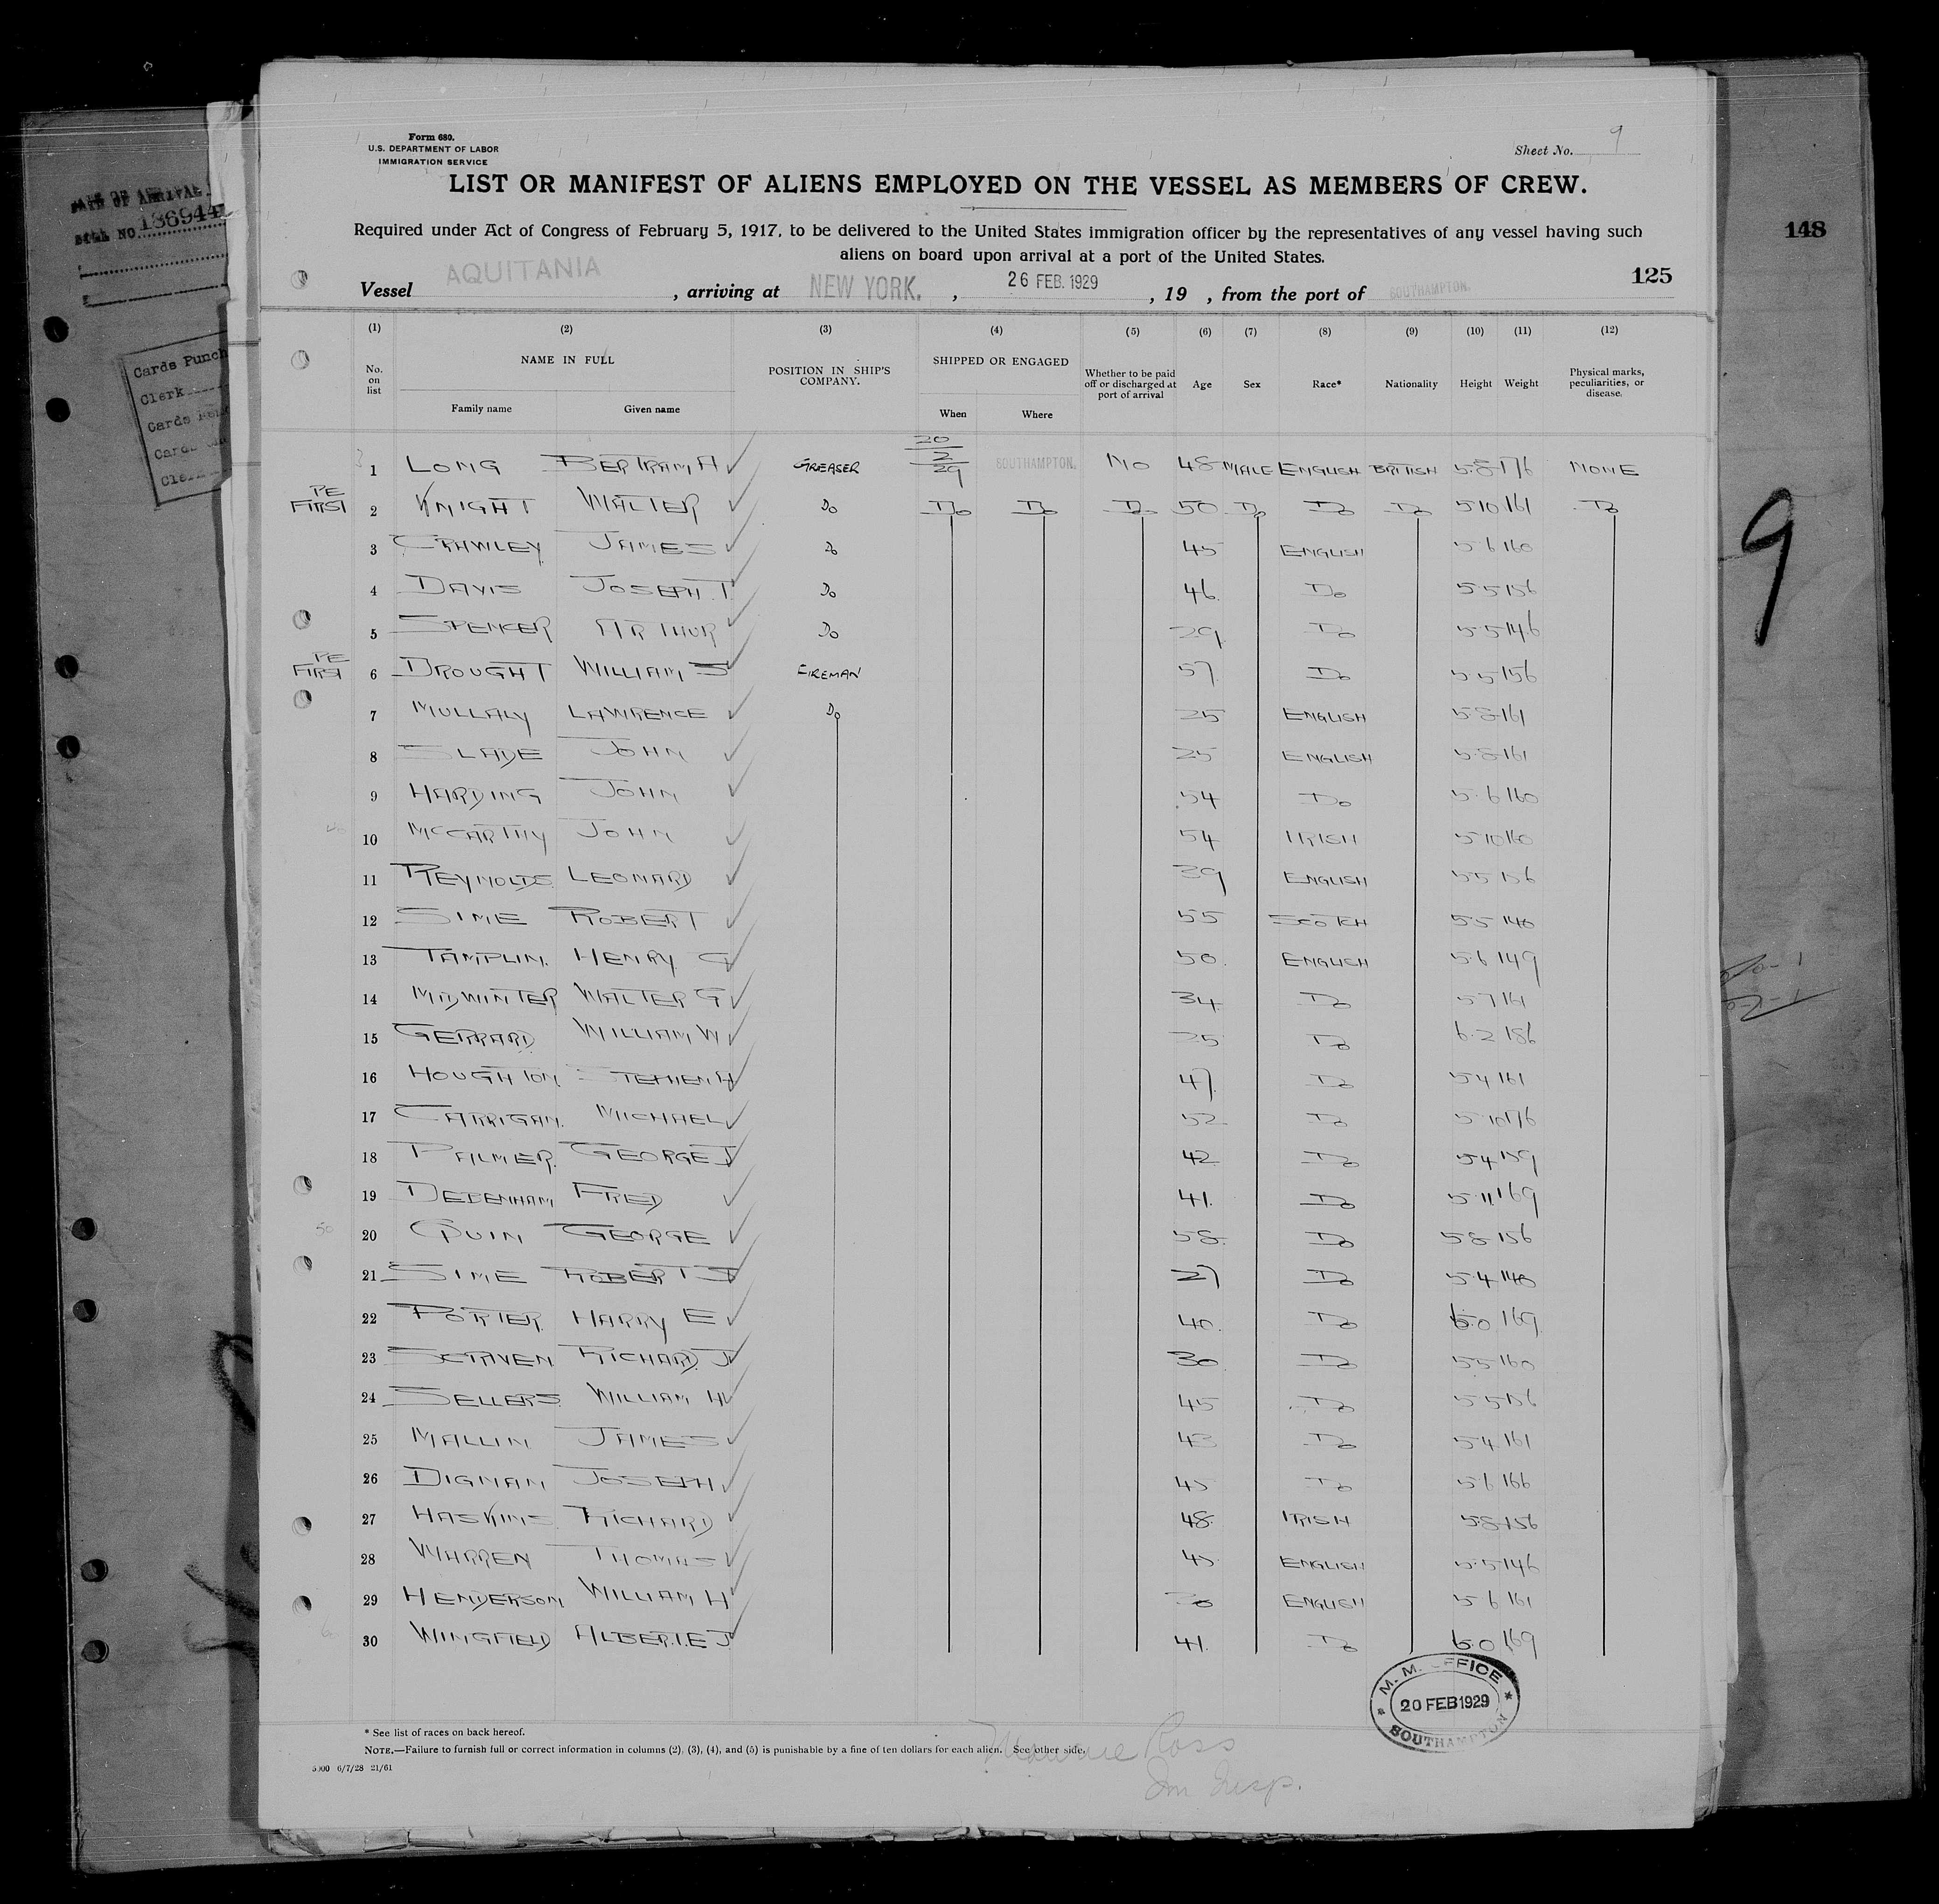 Form 680.
U.S. DEPARTMENT OF LABOR
IMMIGRATION SERVICE
Sheet No. 9
LIST OR MANIFEST OF ALIENS EMPLOYED ON THE VESSEL AS MEMBERS OF CREW.
Required under Act of Congress of February 5, 1917, to be delivered to the United States immigration officer by the representatives of any vessel having such
aliens on board upon arrival at a port of the United States.
125
148
Vessel AQUITANIA, arriving at NEW YORK., 26 FEB. 1929, 19 , from the port of SOUTHAMPTON.
(1) (2) (3) (4) (5) (6) (7) (8) (9) (10) (11) (12)
No. on list NAME IN FULL Family name Given name POSITION IN SHIP'S COMPANY. SHIPPED OR ENGAGED When Where Whether to be paid off or discharged at port of arrival Age Sex Race* Nationality Height Weight Physical marks, peculiarities, or disease.
1 LONG BERTRAM H GREASER 20 2 29 SOUTHAMPTON. NO 48 MALE ENGLISH BRITISH 5.8 176 NONE
PE FIRST 2 KNIGHT WALTER Do Do Do Do 50 Do Do Do 5 10 161 Do
3 CRAWLEY JAMES Do 45 ENGLISH 5 6 160
4 DAVIS JOSEPH.T. Do 46. Do 5.5 156
5 SPENCER ARTHUR Do 29 Do 5.5 146
PE FIRST 6 DROUGHT WILLIAM S FIREMAN 57 Do 5.5 156
7 MULLALY LAWRENCE Do 25 ENGLISH 5.8 161
8 SLADE JOHN 25 ENGLISH 5.8 161
9 HARDING JOHN 54 Do 5.6 160
10 MCCARTHY JOHN 54 IRISH 5.10 160
11 REYNOLDS LEONARD 39 ENGLISH 5.5 156
12 SIME ROBERT 55 SCOTCH 5.5 140
13 TAMPLIN. HENRY G 50. ENGLISH 5.6 149
14 MIDWINTER WALTER G 34 Do 5 7 161
15 GERRARD WILLIAM W 25 Do 6.2 186
16 HOUGHTON STEPHEN H 47. Do 5 4 161
17 CARRIGAN. MICHAEL 52 Do 5.10 176
18 PALMER. GEORGE J 42 Do 5 4 159
19 DEBENHAM FRED 41. Do 5.11 169
20 QUIN GEORGE 58. Do 5 8 156
21 SIME ROBERT J 27 Do 5.4 140
22 PORTER. HARRY E 40. Do 6.0 169
23 SCRIVEN RICHARD. J 30 Do 5 5 160
24 SELLERS WILLIAM H 45 Do 5 5 156
25 MALLIN JAMES 43 Do 5 4 161
26 DIGNAN JOSEPH 45 Do 5 6 166
27 HASKINS RICHARD 48. IRISH 5.8 156
28 WARREN THOMAS 45 ENGLISH 5.5 146
29 HENDERSON WILLIAM H 30 ENGLISH 5 6 161
30 WINGFIELD ALBERT.E J 41. Do 6.0 169
M. M. OFFICE
20 FEB 1929
SOUTHAMPTON
* See list of races on back hereof.
NOTE.—Failure to furnish full or correct information in columns (2), (3), (4), and (5) is punishable by a fine of ten dollars for each alien. See other side.
5000 6/7/28 21/61
Ross
Im Insp.
9
DATE OF ARRIVAL
186944
Cards Punch
Clerk
Cards